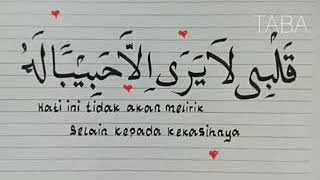 TABA
قَلْبِى لَا يَرَى اِلَّا حَبِيْبًا لَهُ
Hati ini tidak akan melirik
Selain kepada kekasihnya